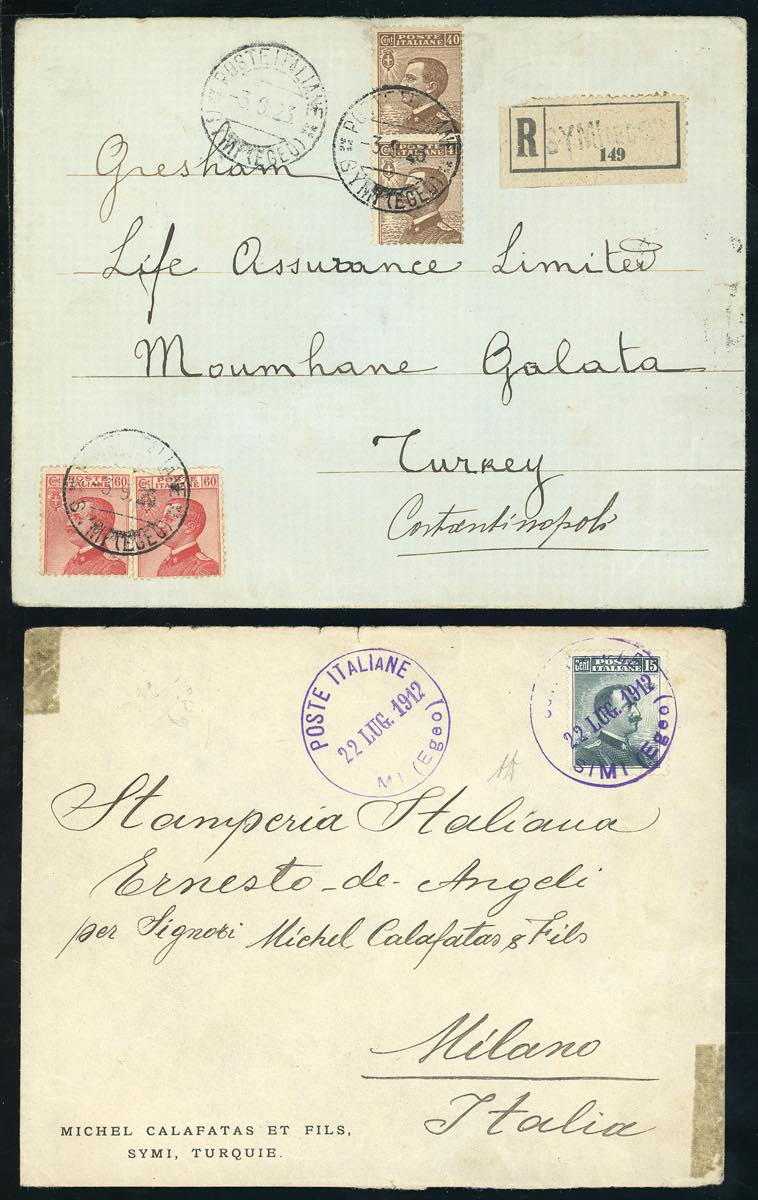 POSTE ITALIANE
-3.9.23
(EGEO)
Cent POSTE ITALIANE 40
POSTE ITALIANE
SYMI (EGEO)
R SYMI
149
Gresham
Life Assurance Limited
Moumhane Galata
Turkey
Costantinopoli
Cent POSTE ITALIANE 60
POSTE ITALIANE 60
SYMI (EGEO)
POSTE ITALIANE
22 LUG. 1912
MI (Egeo)
Cent POSTE ITALIANE 15
22 LUG. 1912
SIMI (Egeo)
Stamperia Italiana
Ernesto-de-Angeli
per Signori Michel Calafatas & Fils
Milano
Italia
MICHEL CALAFATAS ET FILS,
SYMI, TURQUIE.